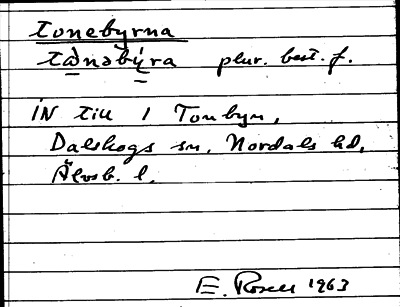 tonebyrna
tònəbý̱ra plur. best. f.
IN till 1 Tonbyn,
Dalskogs sn, Nordals hd,
Älvsb. l.
E. Rosell 1963